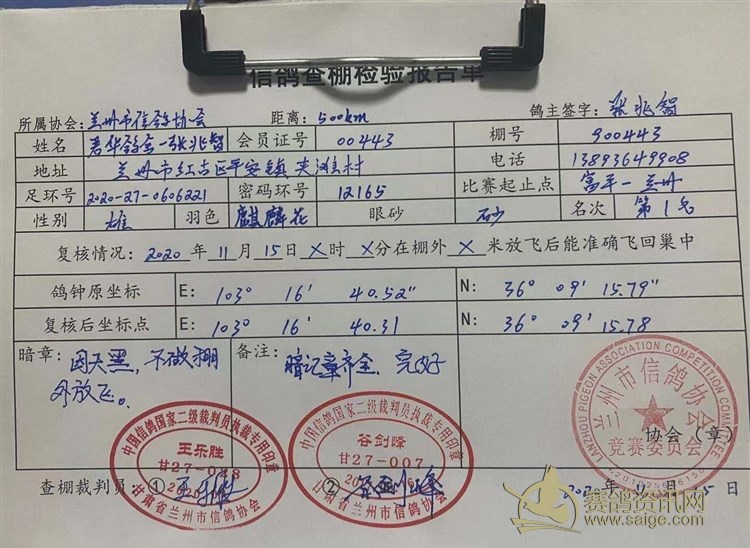 信鸽查棚检验报告单
所属协会: 兰州市信鸽协会 距离: 500km 鸽主签字: 张兆智
姓名 君华鸽舍-张兆智 会员证号 00443 棚号 900443
地址 兰州市红古区平安镇夹滩村 电话 13893649908
足环号 2020-27-0606221 密码环号 12165 比赛起止点 富平-兰州
性别 雄 羽色 麒麟花 眼砂 砂 名次 第1名
复核情况: 2020 年 11 月 15 日 X 时 X 分在棚外 X 米放飞后能准确飞回巢中
鸽钟原坐标 E: 103° 16' 40.52" N: 36° 09' 15.79"
复核后坐标点 E: 103° 16' 40.31 N: 36° 09' 15.78
暗章: 因天黑,不做棚外放飞。 备注: 暗记章齐全、完好
中国信鸽国家二级裁判员执裁专用印章
王乐胜
甘27-048
甘肃省兰州市信鸽协会
中国信鸽国家二级裁判员执裁专用印章
谷剑峰
甘27-007
甘肃省兰州市信鸽协会
LANZHOU PIGEON ASSOCIATION COMPETITION COMMITTEE
兰州市信鸽协会
竞赛委员会
协会(章)
查棚裁判员: ① 王乐胜 ② 谷剑峰 2020 年 11 月 15 日
赛鸽资讯网
www.saige.com